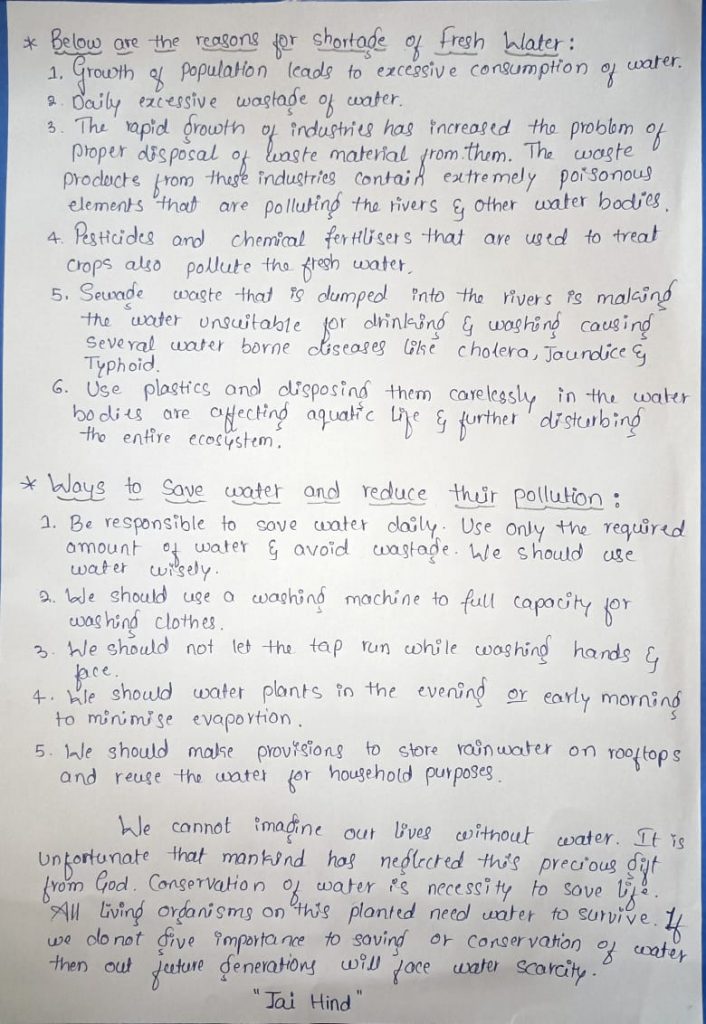 * Below are the reasons for shortage of fresh Water :
1. Growth of population leads to excessive consumption of water.
2. Daily excessive wastage of water.
3. The rapid growth of industries has increased the problem of
proper disposal of waste material from them. The waste
products from these industries contain extremely poisonous
elements that are polluting the rivers & other water bodies.
4. Pesticides and chemical fertilisers that are used to treat
crops also pollute the fresh water.
5. Sewage waste that is dumped into the rivers is making
the water unsuitable for drinking & washing causing
several water borne diseases like cholera, Jaundice &
Typhoid.
6. Use plastics and disposing them carelessly in the water
bodies are affecting aquatic life & further disturbing
the entire ecosystem.
* Ways to save water and reduce their pollution :
1. Be responsible to save water daily. Use only the required
amount of water & avoid wastage. We should use
water wisely.
2. We should use a washing machine to full capacity for
washing clothes.
3. We should not let the tap run while washing hands &
face.
4. We should water plants in the evening or early morning
to minimise evaportion.
5. We should make provisions to store rainwater on rooftops
and reuse the water for household purposes.
We cannot imagine our lives without water. It is
unfortunate that mankind has neglected this precious gift
from God. Conservation of water is necessity to save life.
All living organisms on this planted need water to survive. If
we do not give importance to saving or conservation of water
then out future generations will face water scarcity.
"Jai Hind"